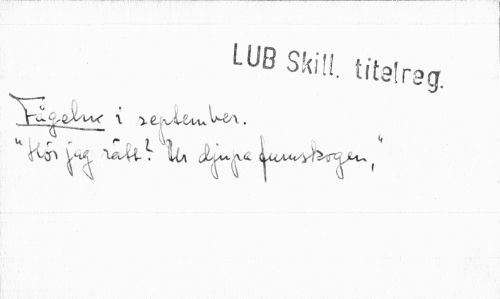 LUB Skill. titelreg.
Fågeln i september.
"Hör jag rätt? Ur djupa furuskogen,"